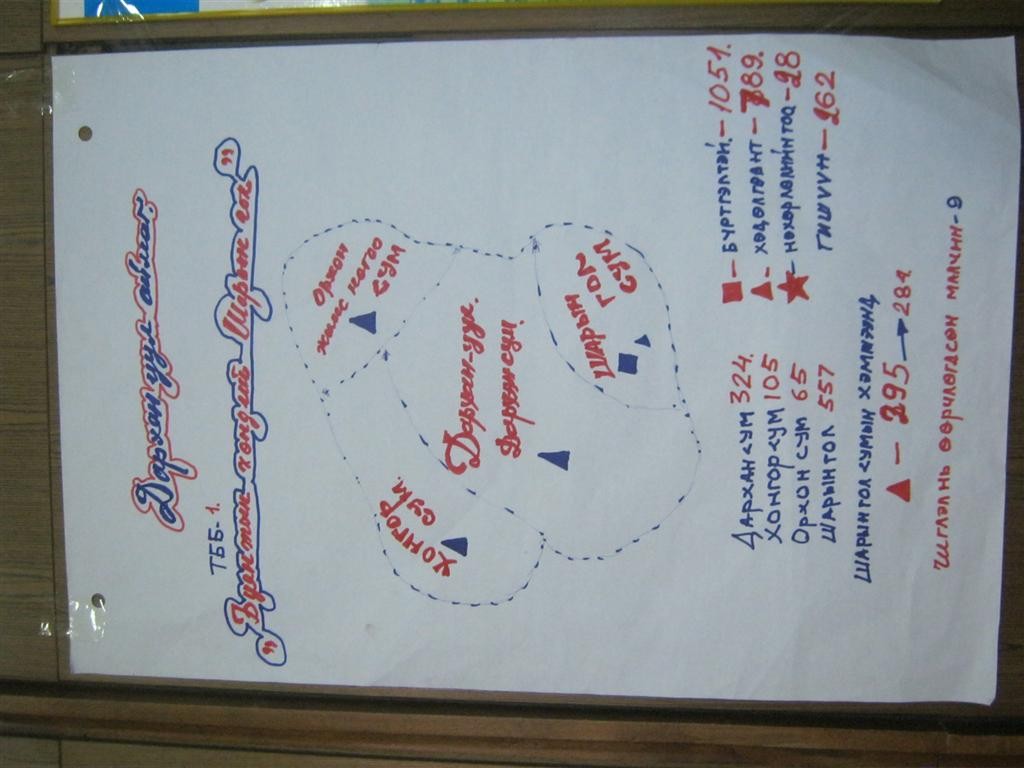 Дархан уул аймаг.
ТББ-1.
"Буянтын хөндий-Шарын гол"
Орхон
сум
Хонгор
сум.
Дархан-уул.
Дархан сум
Шарын
гол
сум
Дархан сум 324.
Хонгор сум 105
Орхон сум 65
Шарынгол 557
- Бүртгэлтэй. - 1051.
- хөдөлгөөнт - 789.
- нөхөрлөлийн тоо - 28
Гишүүн - 262
Шарынгол сумын хэмжээнд
- 295 → 281.
Чиглэл нь өөрчлөгдсөн малчин - 9